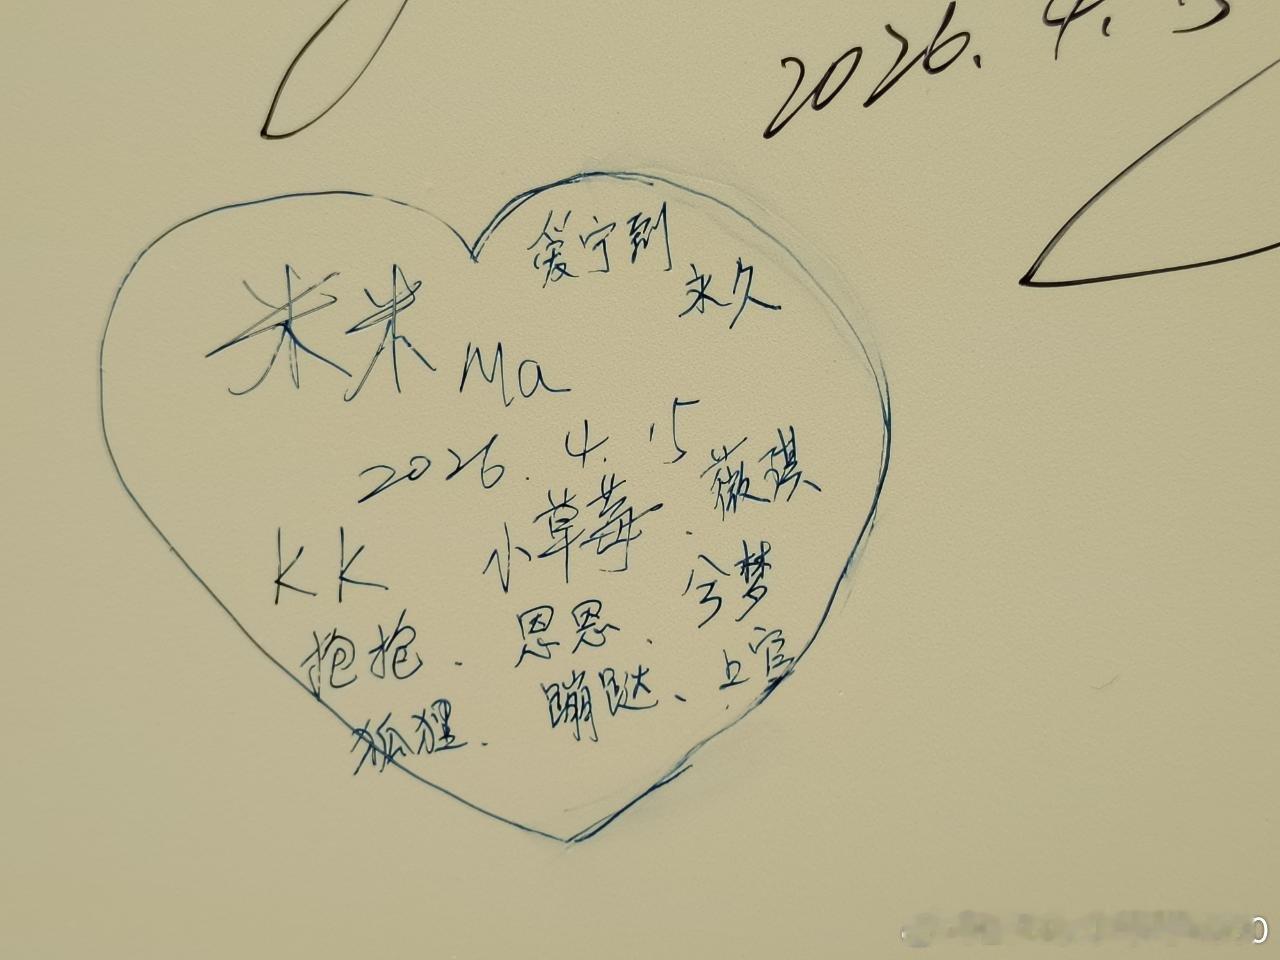 2026.4.
爱宁到
永久
米米 Ma
2026.4.15
薇琪
KK 小草莓.
兮梦
抱抱. 恩恩.
狐狸. 蹦跶、上官